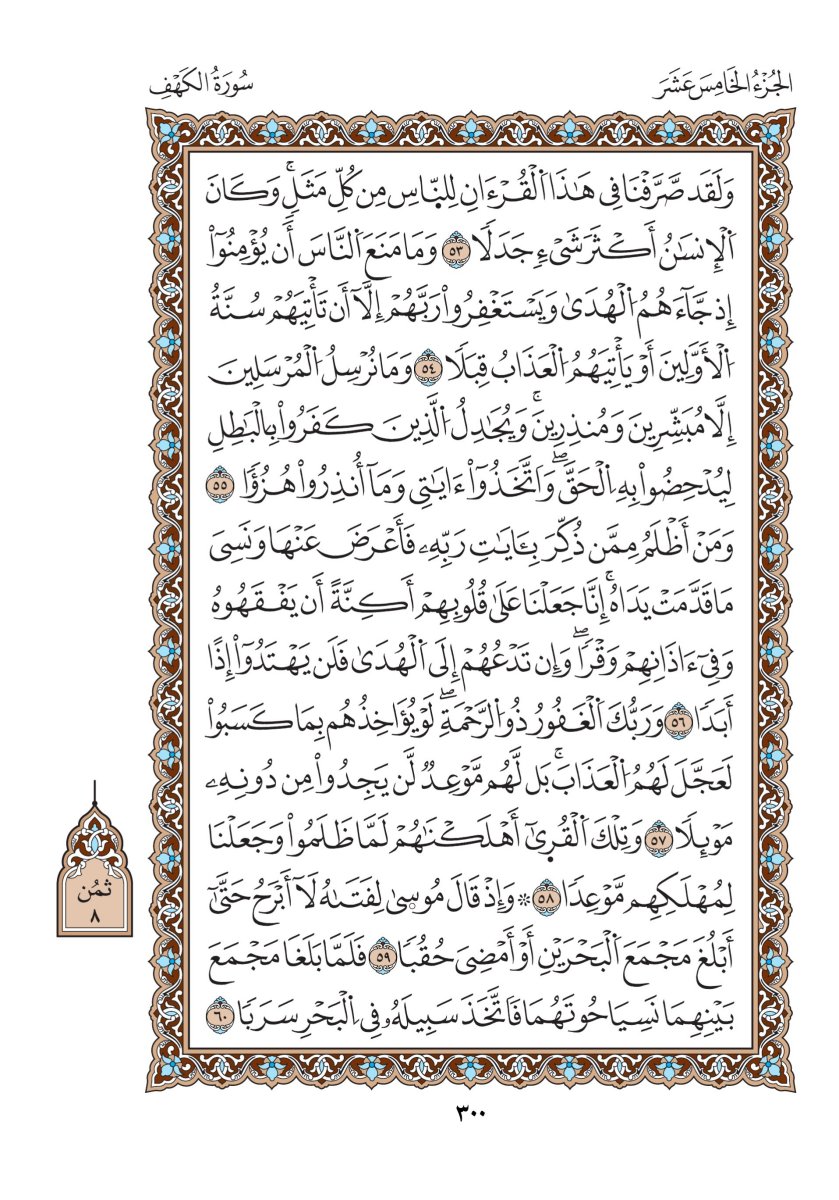 الجُزْءُ الخَامِسَ عَشَرَ
سُورَةُ الكَهْفِ
وَلَقَد صَّرَّفْنَا فِى هَٰذَا اَ۬لْقُرْءَانِ لِلنَّاسِ مِن كُلِّ مَثَلٖۚ وَكَانَ
اَ۬لْإِنسَٰنُ أَكْثَرَ شَىْءٖ جَدَلٗا ٥٣ وَمَا مَنَعَ اَ۬لنَّاسَ أَن يُؤْمِنُوٓاْ
إِذ جَّآءَهُمُ اُ۬لْهُدَىٰ وَيَسْتَغْفِرُواْ رَبَّهُمْ إِلَّآ أَن تَأْتِيَهُمْ سُنَّةُ
اُ۬لْأَوَّلِينَ أَوْ يَأْتِيَهُمُ اُ۬لْعَذَابُ قِبَلٗا ٥٤ وَمَا نُرْسِلُ اُ۬لْمُرْسَلِينَ
إِلَّا مُبَشِّرِينَ وَمُنذِرِينَۚ وَيُجَٰدِلُ اُ۬لَّذِينَ كَفَرُواْ بِالْبَٰطِلِ
لِيُدْحِضُواْ بِهِ اِ۬لْحَقَّۖ وَاَتَّخَذُوٓاْ ءَايَٰتِى وَمَآ أُنذِرُواْ هُزُؤٗا ٥٥
وَمَنْ أَظْلَمُ مِمَّن ذُكِّرَ بِـَٔايَٰتِ رَبِّهِۦ فَأَعْرَضَ عَنْهَا وَنَسِىَ
مَا قَدَّمَتْ يَدَاهُۚ إِنَّا جَعَلْنَا عَلَىٰ قُلُوبِهِمْ أَكِنَّةً أَن يَفْقَهُوهُ
وَفِىٓ ءَاذَانِهِمْ وَقْرٗاۖ وَإِن تَدْعُهُمْ إِلَى اَ۬لْهُدَىٰ فَلَن يَهْتَدُوٓاْ إِذًا
أَبَدٗا ٥٦ وَرَبُّكَ اَ۬لْغَفُورُ ذُو اُ۬لرَّحْمَةِۖ لَوْ يُؤَاخِذُهُم بِمَا كَسَبُواْ
لَعَجَّلَ لَهُمُ اُ۬لْعَذَابَۚ بَل لَّهُم مَّوْعِدٞ لَّن يَجِدُواْ مِن دُونِهِۦ
مَوْئِلٗا ٥٧ وَتِلْكَ اَ۬لْقُرَىٰٓ أَهْلَكْنَٰهُمْ لَمَّا ظَلَمُواْ وَجَعَلْنَا
لِمُهْلَكِهِم مَّوْعِدٗا ٥٨ ۞ وَإِذْ قَالَ مُوسِىٰ لِفَتَىٰهُ لَآ أَبْرَحُ حَتَّىٰٓ
أَبْلُغَ مَجْمَعَ اَ۬لْبَحْرَيْنِ أَوْ أَمْضِىَ حُقُبٗا ٥٩ فَلَمَّا بَلَغَا مَجْمَعَ
بَيْنِهِمَا نَسِيَا حُوتَهُمَا فَاَتَّخَذَ سَبِيلَهُۥ فِى اِ۬لْبَحْرِ سَرَبٗا ٦٠
ثُمُن
٨
٣٠٠